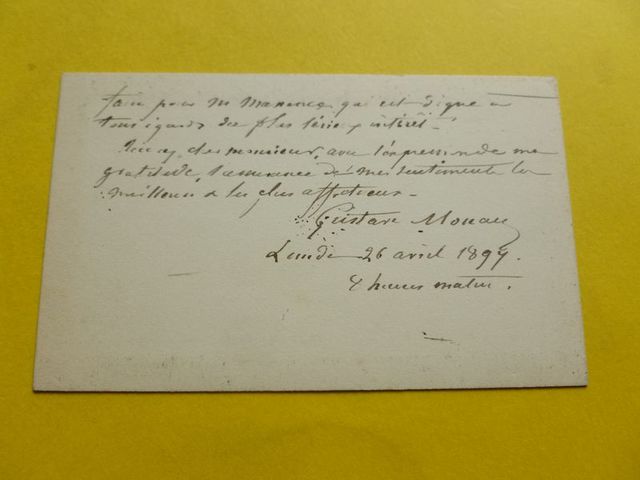 faire pour M qui est digne à
tous égards du plus sérieux intérêt.
cher monsieur, avec l'expression de ma
gratitude, l'assurance de mes sentiments les
meilleurs & les plus affectueux.
Gustave
Lundi 26 avril 1897.
heures matin.